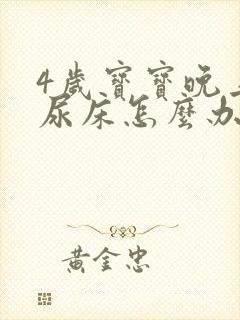 4歲寶寶晚上
尿床怎麼办
黃金忠